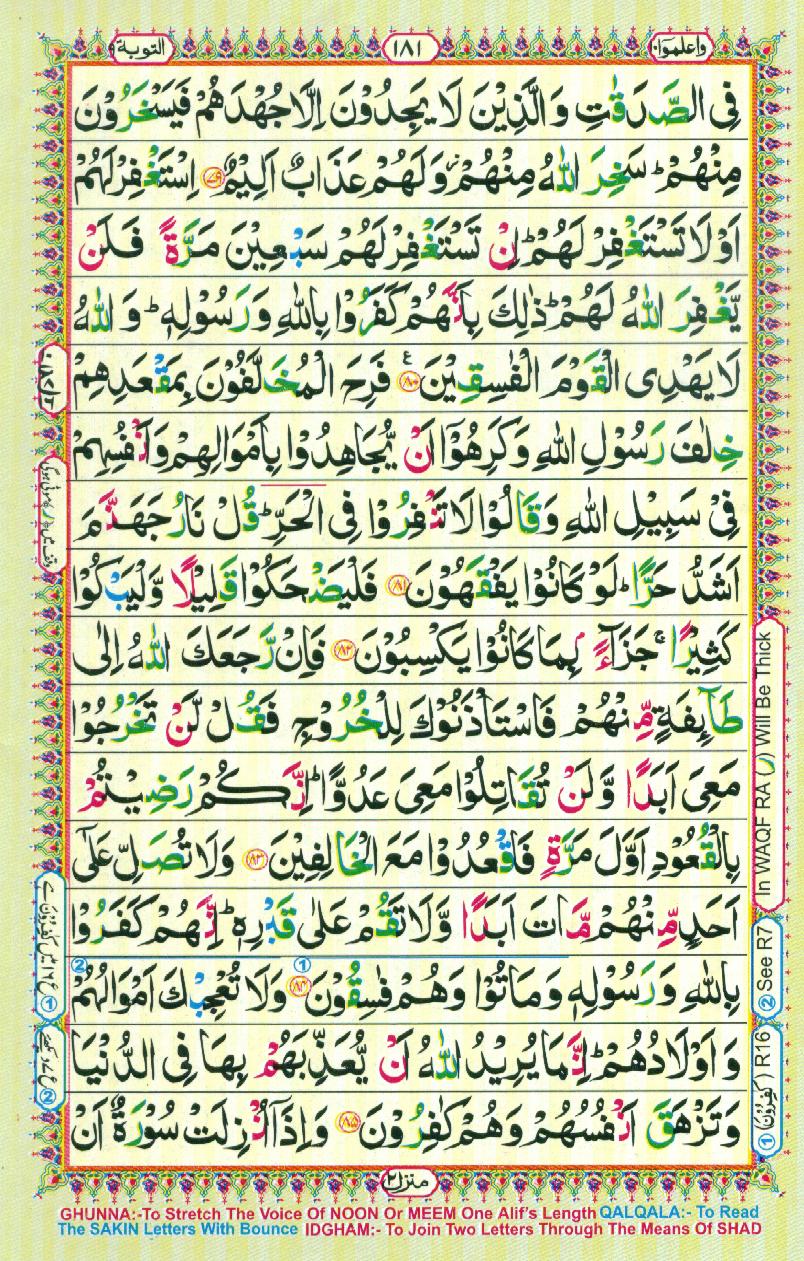 التوبة ٩
١٨١
واعلموا ١٠
فِى الصَّدَقٰتِ وَالَّذِيْنَ لَا يَجِدُوْنَ اِلَّا جُهْدَهُمْ فَيَسْخَرُوْنَ
مِنْهُمْ ؕ سَخِرَ اللّٰهُ مِنْهُمْ ؗ وَلَهُمْ عَذَابٌ اَلِيْمٌ ﴿٧٩﴾ اِسْتَغْفِرْ لَهُمْ
اَوْ لَا تَسْتَغْفِرْ لَهُمْ ؕ اِنْ تَسْتَغْفِرْ لَهُمْ سَبْعِيْنَ مَرَّةً فَلَنْ
يَّغْفِرَ اللّٰهُ لَهُمْ ؕ ذٰلِكَ بِاَنَّهُمْ كَفَرُوْا بِاللّٰهِ وَرَسُوْلِهٖ ؕ وَاللّٰهُ
لَا يَهْدِى الْقَوْمَ الْفٰسِقِيْنَ ﴿٨٠﴾ فَرِحَ الْمُخَلَّفُوْنَ بِمَقْعَدِهِمْ
خِلٰفَ رَسُوْلِ اللّٰهِ وَكَرِهُوْۤا اَنْ يُّجَاهِدُوْا بِاَمْوَالِهِمْ وَاَنْفُسِهِمْ
فِىْ سَبِيْلِ اللّٰهِ وَقَالُوْا لَا تَنْفِرُوْا فِى الْحَرِّ ؕ قُلْ نَارُ جَهَنَّمَ
اَشَدُّ حَرًّا ؕ لَوْ كَانُوْا يَفْقَهُوْنَ ﴿٨١﴾ فَلْيَضْحَكُوْا قَلِيْلًا وَّلْيَبْكُوْا
كَثِيْرًا ۚ جَزَآءًۢ بِمَا كَانُوْا يَكْسِبُوْنَ ﴿٨٢﴾ فَاِنْ رَّجَعَكَ اللّٰهُ اِلٰى
طَآٮِٕفَةٍ مِّنْهُمْ فَاسْتَاْذَنُوْكَ لِلْخُرُوْجِ فَقُلْ لَّنْ تَخْرُجُوْا
مَعِىَ اَبَدًا وَّلَنْ تُقَاتِلُوْا مَعِىَ عَدُوًّا ؕ اِنَّكُمْ رَضِيْتُمْ
بِالْقُعُوْدِ اَوَّلَ مَرَّةٍ فَاقْعُدُوْا مَعَ الْخَالِفِيْنَ ﴿٨٣﴾ وَلَا تُصَلِّ عَلٰٓى
اَحَدٍ مِّنْهُمْ مَّاتَ اَبَدًا وَّلَا تَقُمْ عَلٰى قَبْرِهٖ ؕ اِنَّهُمْ كَفَرُوْا
بِاللّٰهِ وَرَسُوْلِهٖ وَمَاتُوْا وَهُمْ فٰسِقُوْنَ ﴿٨٤﴾ وَلَا تُعْجِبْكَ اَمْوَالُهُمْ
وَاَوْلَادُهُمْ ؕ اِنَّمَا يُرِيْدُ اللّٰهُ اَنْ يُّعَذِّبَهُمْ بِهَا فِى الدُّنْيَا
وَتَزْهَقَ اَنْفُسُهُمْ وَهُمْ كٰفِرُوْنَ ﴿٨٥﴾ وَاِذَاۤ اُنْزِلَتْ سُوْرَةٌ اَنْ
منزل ٢
In WAQF RA (ر) Will Be Thick
② See R7
① (كٰفِرُوْنَ) R16
GHUNNA:-To Stretch The Voice Of NOON Or MEEM One Alif's Length QALQALA:- To Read
The SAKIN Letters With Bounce IDGHAM:- To Join Two Letters Through The Means Of SHAD